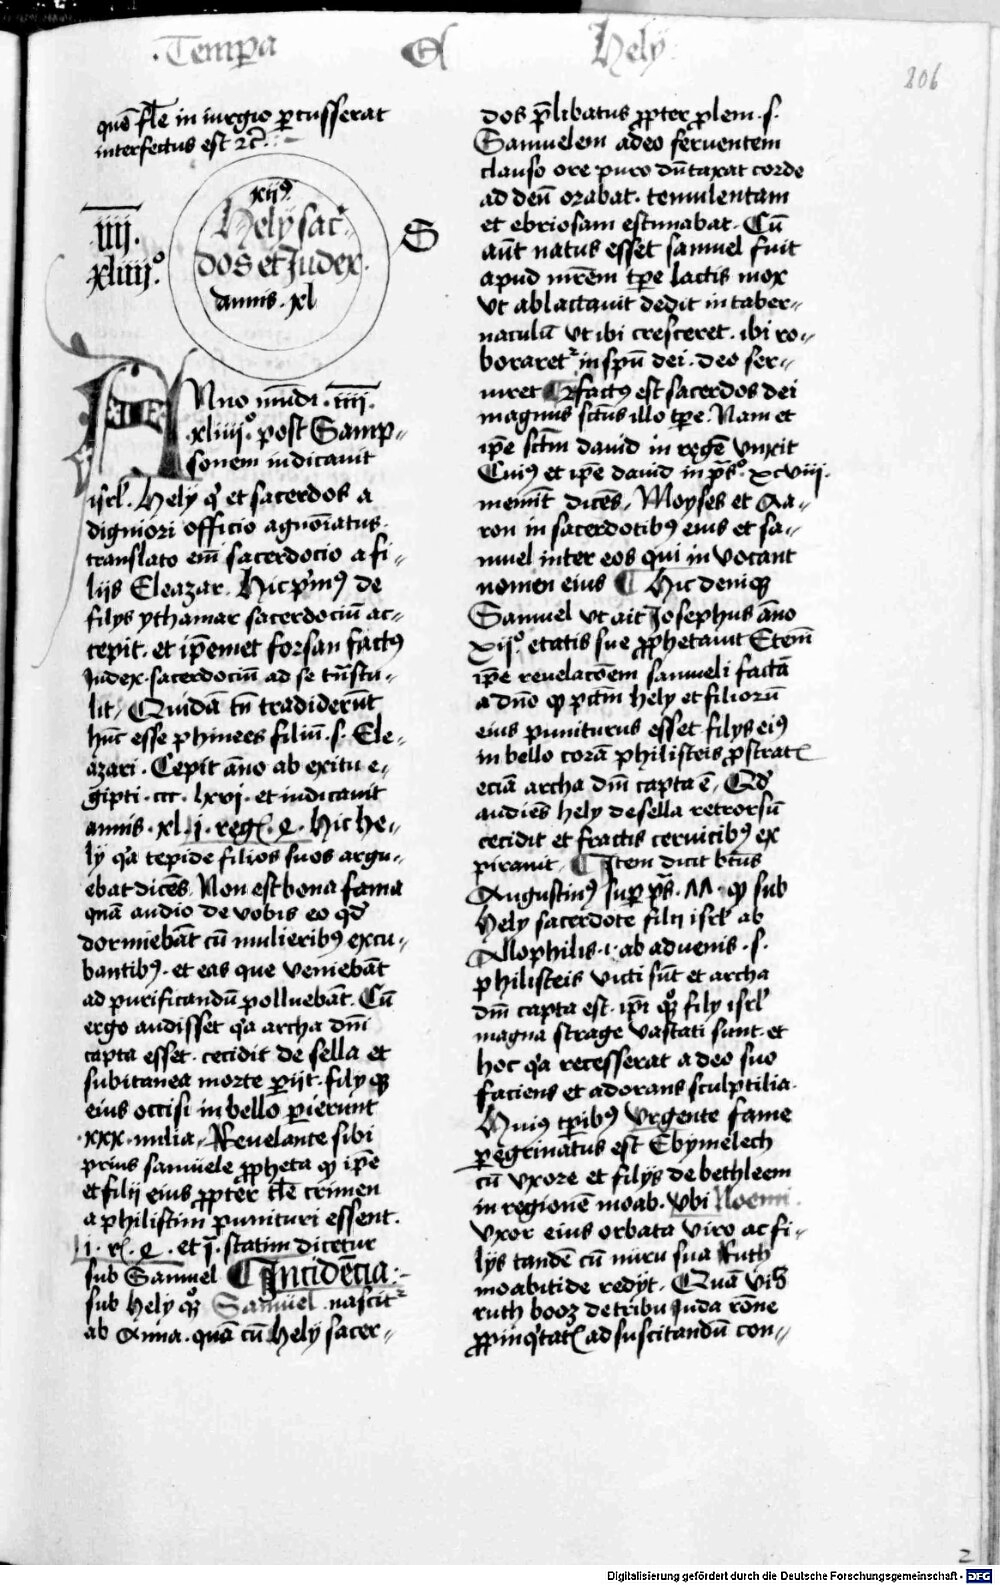 Tempa
Et
Hely
206
quē fr̄e in iurgio ꝑcusserat
interfectus est ꝛc̄.
iiij.
xliiij.°
xijꝰ.
Hely sac̄-
dos et Judex.
annis .xl
S
ANno mūdi .iiij.
.xliiij.° post Samp-
sonem iudicauit
isrl̄. Hely q' et sacerdos a
digniori officio agnōiatus.
translato em̄ sacerdocio a fi-
lijs Eleazar. Hic pͥmꝰ de
filys ythamar sacerdociū ac-
cepit. et ip̄emet forsan factꝰ
Judex. sacerdociū ad se trn̄stu-
lit, Quidā tn̄ tradiderūt
hūc esse phinees filiū .s. Ele-
azari. Cepit āno ab exitu e-
gipti .ccc. lxvi. et iudicauit
annis .xl. j. reg. 2. Hic he-
ly qͥa tepide filios suos argu-
ebat dicēs, Non est bona fama
quā audio de vobis eo qd̄
dormiebāt cū mulieribꝰ excu-
bantibꝰ. et eas que veniebāt
ad purificandū polluebāt. Cū
ergo audisset qͥa archa dn̄i
capta esset. cecidit de sella et
subitanea morte ꝑijt. filyqꝫ
eius occisi in bello ꝑierunt
.xxx. milia, Reuelante sibi
prius samuele ꝓpheta qꝫ ip̄e
et filij eius ꝓpter tl̄e crimen
a philistim punituri essent.
j. r. 2. et 3. statim dicetur
sub Samuel ¶ Incidēcia:
sub Hely qꝫ Samuel nascitᷣ
ab Anna. quā cū Hely sacer-
dos p̄libatus ꝓpter ꝓlem .s.
Samuelem adeo feruentem
clauso ore puro dūtaxat corde
ad deū orabat. temulentam
et ebriosam estimabat. Cū
aūt natus esset samuel fuit
apud mr̄em tp̄e lactis mox
vt ablactauit dedit in taber-
naculū vt ibi cresceret. ibi ro-
boraretᷣ in spū dei. deo ser-
uiret ¶ Factꝰ est sacerdos dei
magnus sctūs illo tp̄e. Nam et
ip̄e sctm̄ dauid in regē vnxit
Cuiꝰ et ip̄e dauid in ps̄.° xcviij.
memīt dicēs, Moyses et Aa-
ron in sacerdotibꝰ eius et sa-
muel inter eos qui in vocant
nomen eius ¶ Hic deniqꝫ
Samuel vt ait Josephus āno
xij.° etatis sue ꝓphetauit Etem̄
ip̄e reuelac̄oem samueli factā
a dn̄o qꝫ pctm̄ hely et filiorū
eius puniturus esset. filys eiꝰ
in bello corā philisteis ꝓstrat
eciā archa dn̄i capta ē, Qd̄
audiēs hely de sella retrorsū
cecidit et fractis ceruicibꝰ ex
pirauit, ¶ Item dicit btūs
Augustinꝰ suꝑ ps̄. qꝫ sub
Hely sacerdote filij isrl̄ ab
Allophilis .i. ab aduenis .s.
philisteis victi sūt et archa
dn̄i capta est. ip̄i qꝫ fily isrl̄
magna strage vastati sunt. et
hoc qͥa recesserat a deo suo
faciens et adorans sculptilia.
Huiꝰ tꝑibꝰ vrgente fame
ꝑegrinatus est Ebymelech
cū vxore et filijs de bethleem
in regionē moab. vbi Noemi
vxor eius orbata viro ac fi-
lijs tandē cū nuru sua Ruth
moabitide redijt. Quā
ruth booz de tribu Juda rōne
ꝓpinqͥtat ad suscitandū con-
2
Digitalisierung gefördert durch die Deutsche Forschungsgemeinschaft - DFG